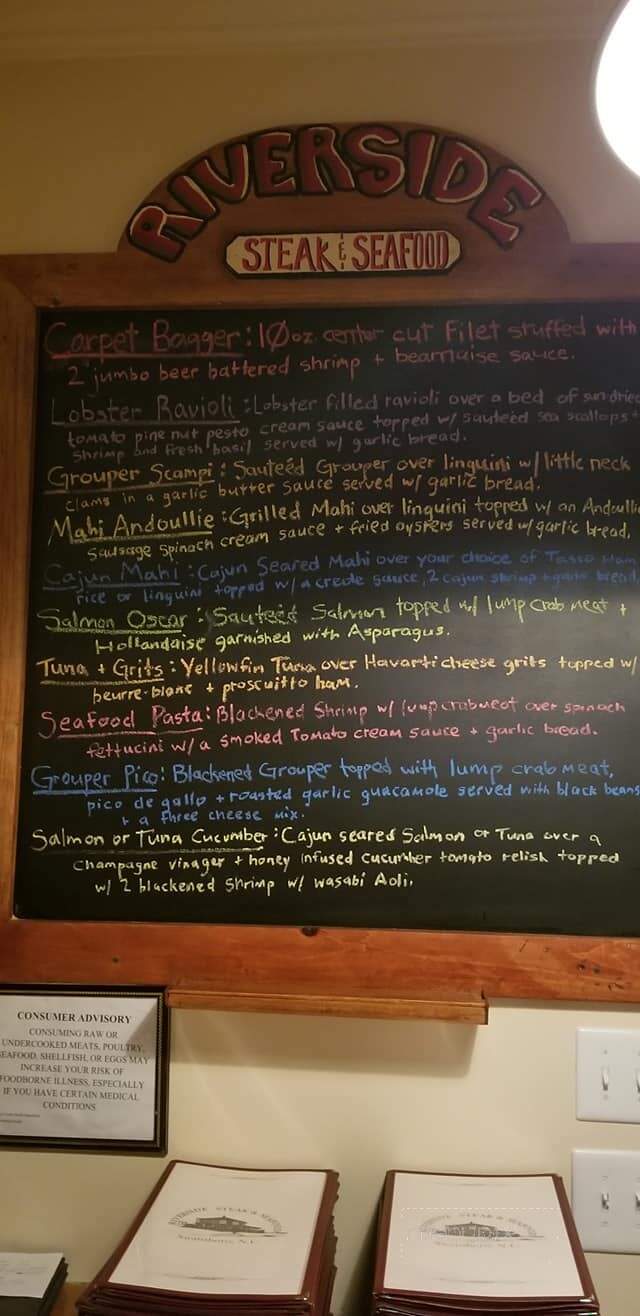 RIVERSIDE
STEAK & SEAFOOD
Carpet Bagger: 10oz center cut Filet stuffed with
2 jumbo beer battered shrimp + bearnaise sauce.
Lobster Ravioli: Lobster filled ravioli over a bed of sundried
tomato pine nut pesto cream sauce topped w/ sauteéd sea scallops +
shrimp and fresh basil served w/ garlic bread.
Grouper Scampi: Sauteéd Grouper over linguini w/ little neck
clams in a garlic butter sauce served w/ garlic bread.
Mahi Andoullie: Grilled Mahi over linguini topped w/ an Andoullie
Sausage spinach cream sauce + fried oysters served w/ garlic bread.
Cajun Mahi: Cajun Seared Mahi over your choice of Tasso Ham
rice or linguini topped w/ a creole sauce, 2 cajun shrimp + garlic bread
Salmon Oscar: Sauteéd Salmon topped w/ lump crab meat +
Hollandaise garnished with Asparagus.
Tuna + Grits: Yellowfin Tuna over Havarti cheese grits topped w/
beurre-blanc + proscuitto ham.
Seafood Pasta: Blackened Shrimp w/ lump crabmeat over spinach
fettucini w/ a smoked Tomato cream sauce + garlic bread.
Grouper Pico: Blackened Grouper topped with lump crab meat,
pico de gallo + roasted garlic guacamole served with black beans
+ a three cheese mix.
Salmon or Tuna Cucumber: Cajun seared Salmon or Tuna over a
champagne vinager + honey infused cucumber tomato relish topped
w/ 2 blackened shrimp w/ wasabi Aoli.
CONSUMER ADVISORY
CONSUMING RAW OR
UNDERCOOKED MEATS, POULTRY,
SEAFOOD, SHELLFISH, OR EGGS MAY
INCREASE YOUR RISK OF
FOODBORNE ILLNESS, ESPECIALLY
IF YOU HAVE CERTAIN MEDICAL
CONDITIONS
RIVERSIDE STEAK & SEAFOOD
Swansboro, N.C.
RIVERSIDE STEAK & SEAFOOD
Swansboro, N.C.